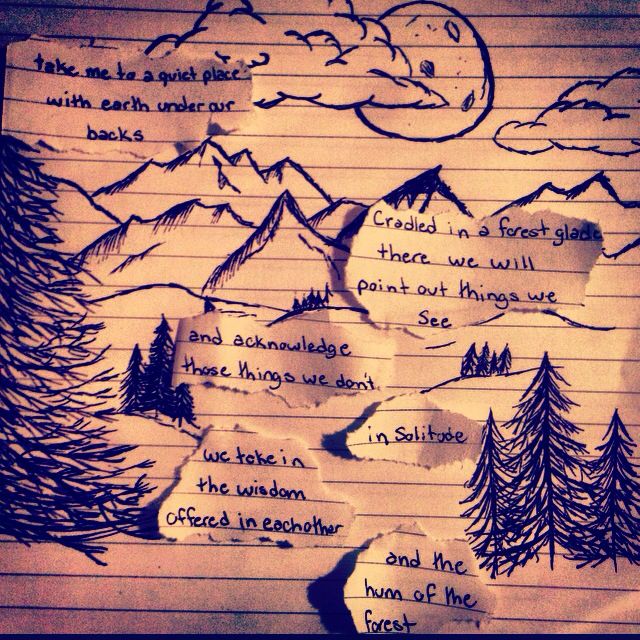 take me to a quiet place
with earth under our
backs
Cradled in a forest glade
there we will
point out things we
See
and acknowledge
those things we don't
in Solitude
we take in
the wisdom
offered in eachother
and the
hum of the
forest